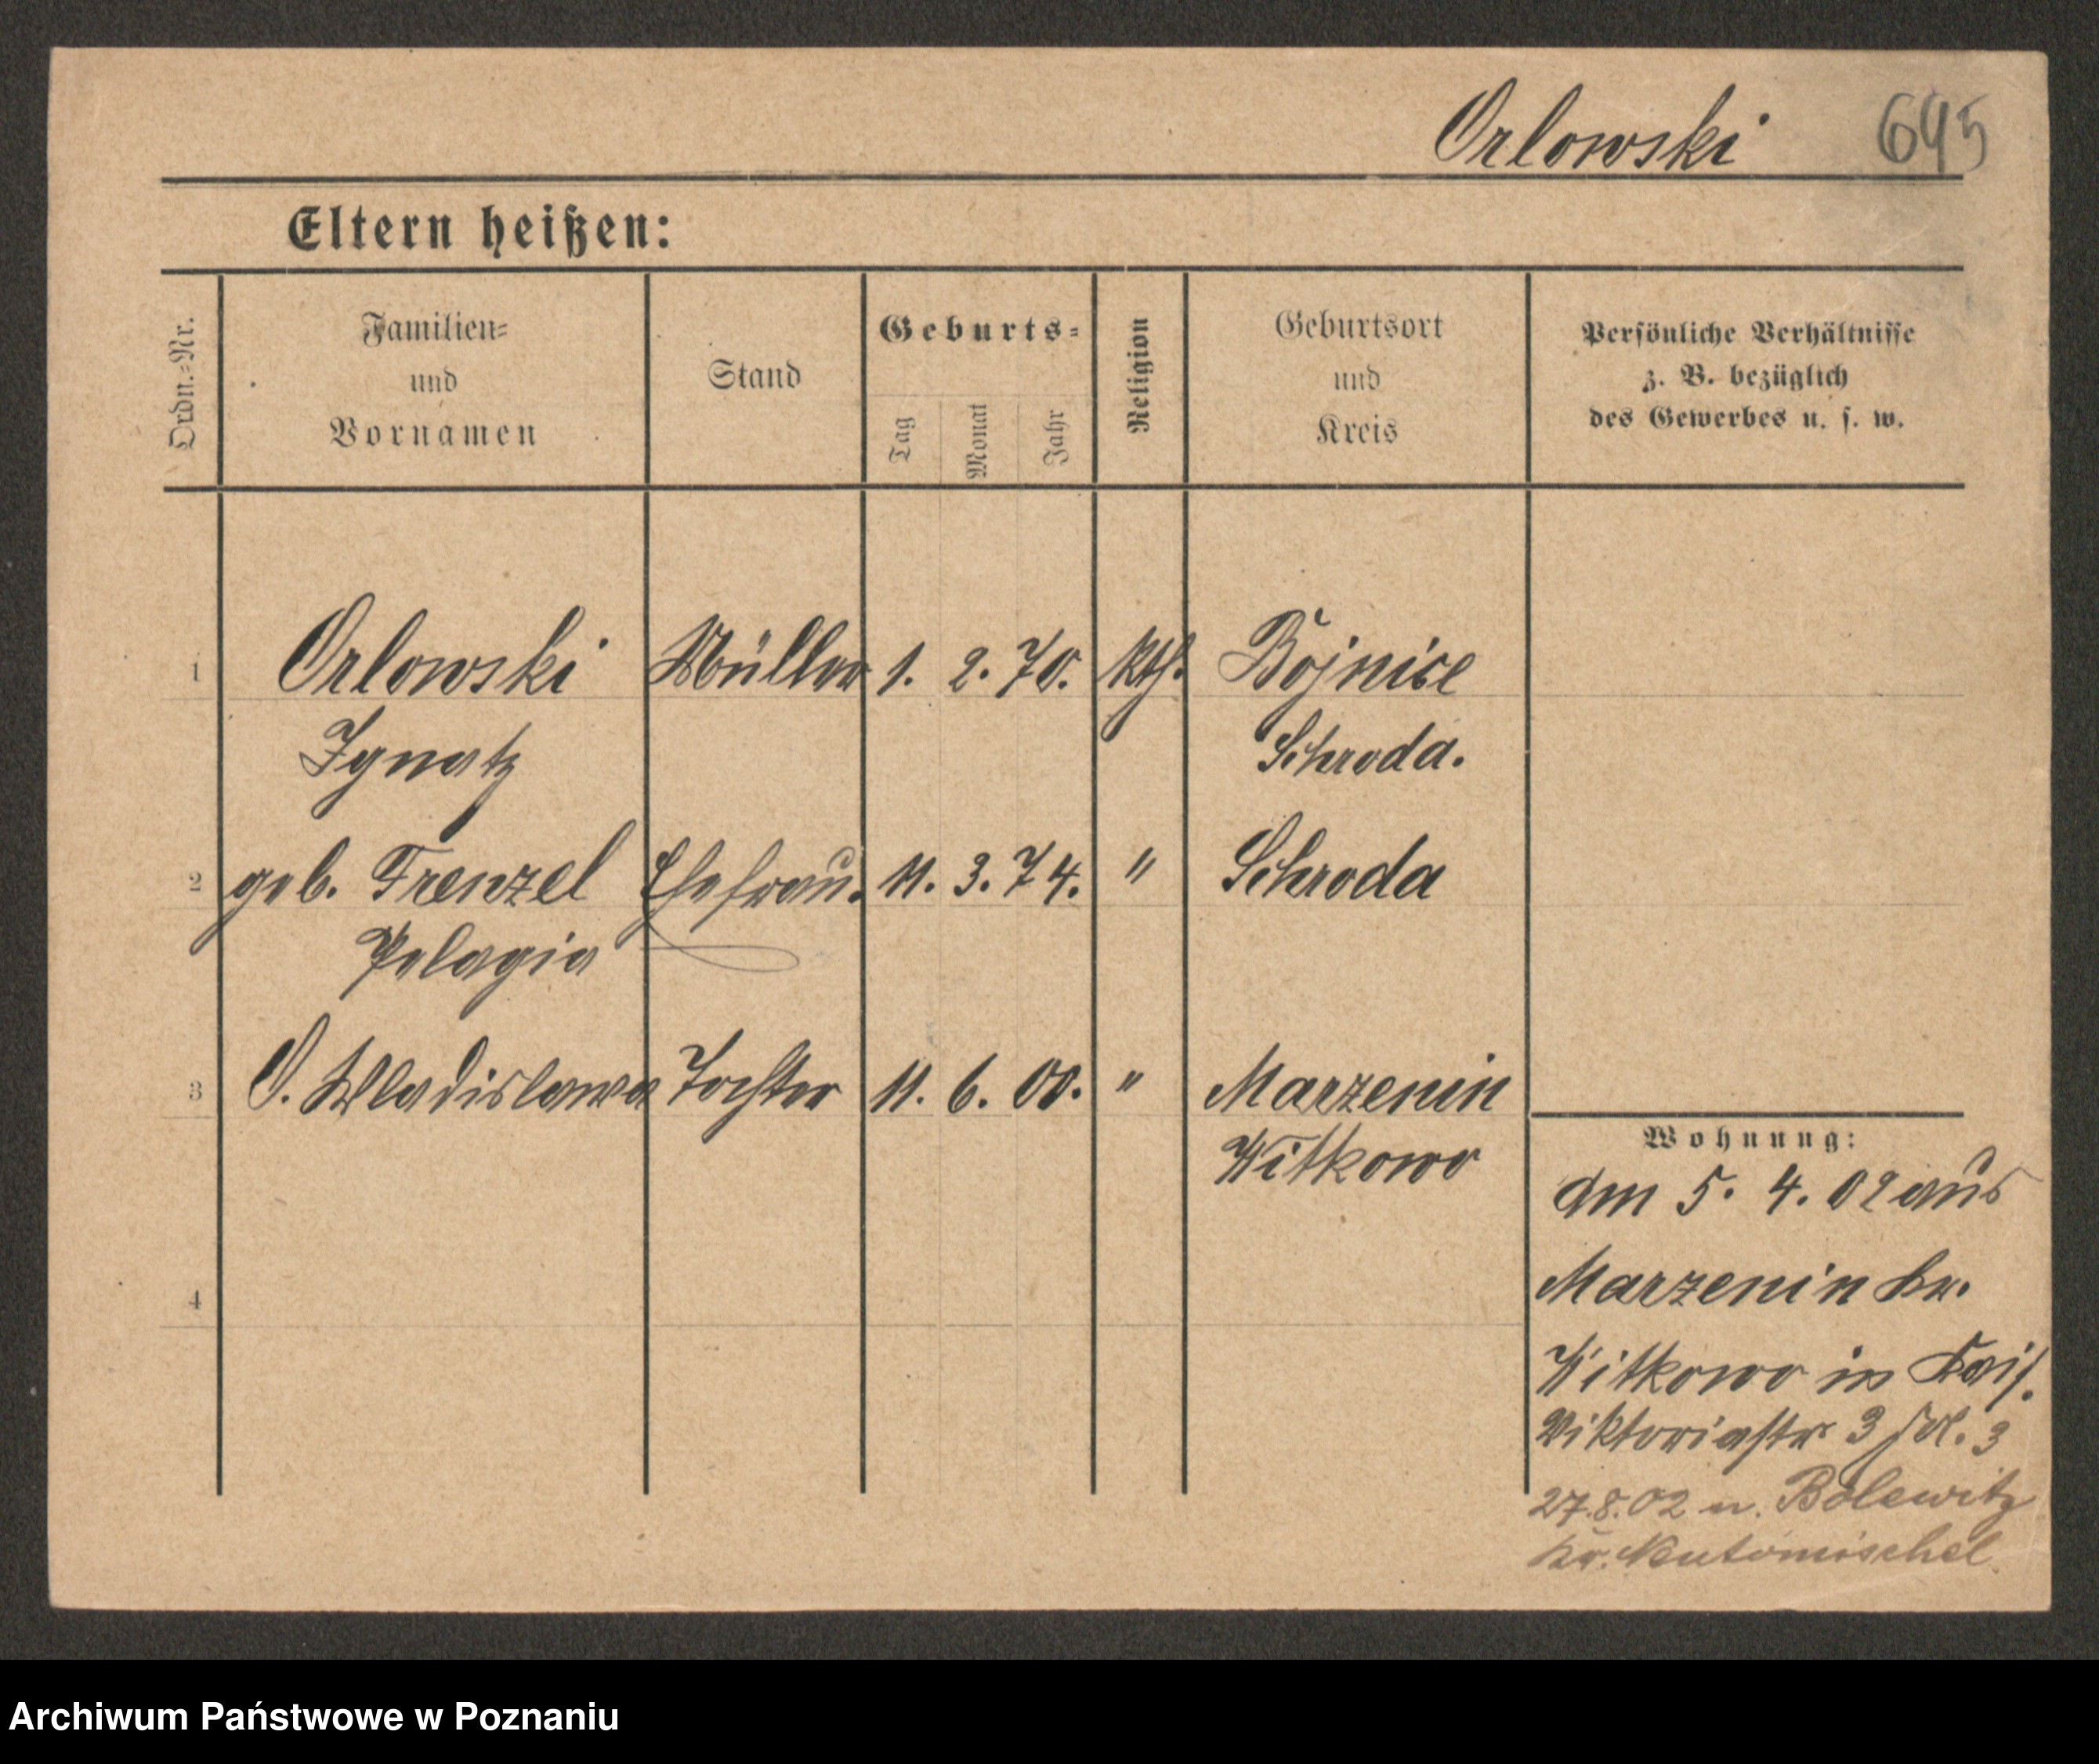 Orlowski 695
Eltern heißen:
Ordn.-Nr.
Familien=
und
Vornamen
Stand
Geburts=
Tag
Monat
Jahr
Religion
Geburtsort
und
Kreis
Persönliche Verhältnisse
z. B. bezüglich
des Gewerbes u. s. w.
1 Orlowski Müller 1. 2. 70. kth. Bojnice
Ignatz Schroda.
2 geb. Frenzel Ehefrau. 11. 3. 74. " Schroda
Pelagia
3 O. Wladislawa Tochter 11. 6. 00. " Marzenin
Witkowo
4
Wohnung:
Am 5. 4. 02 aus
Marzenin Kr.
Witkowo in
Viktoriastr 3 3
27.8.02 n. Bolewitz
Kr. Neutomischel.
Archiwum Państwowe w Poznaniu